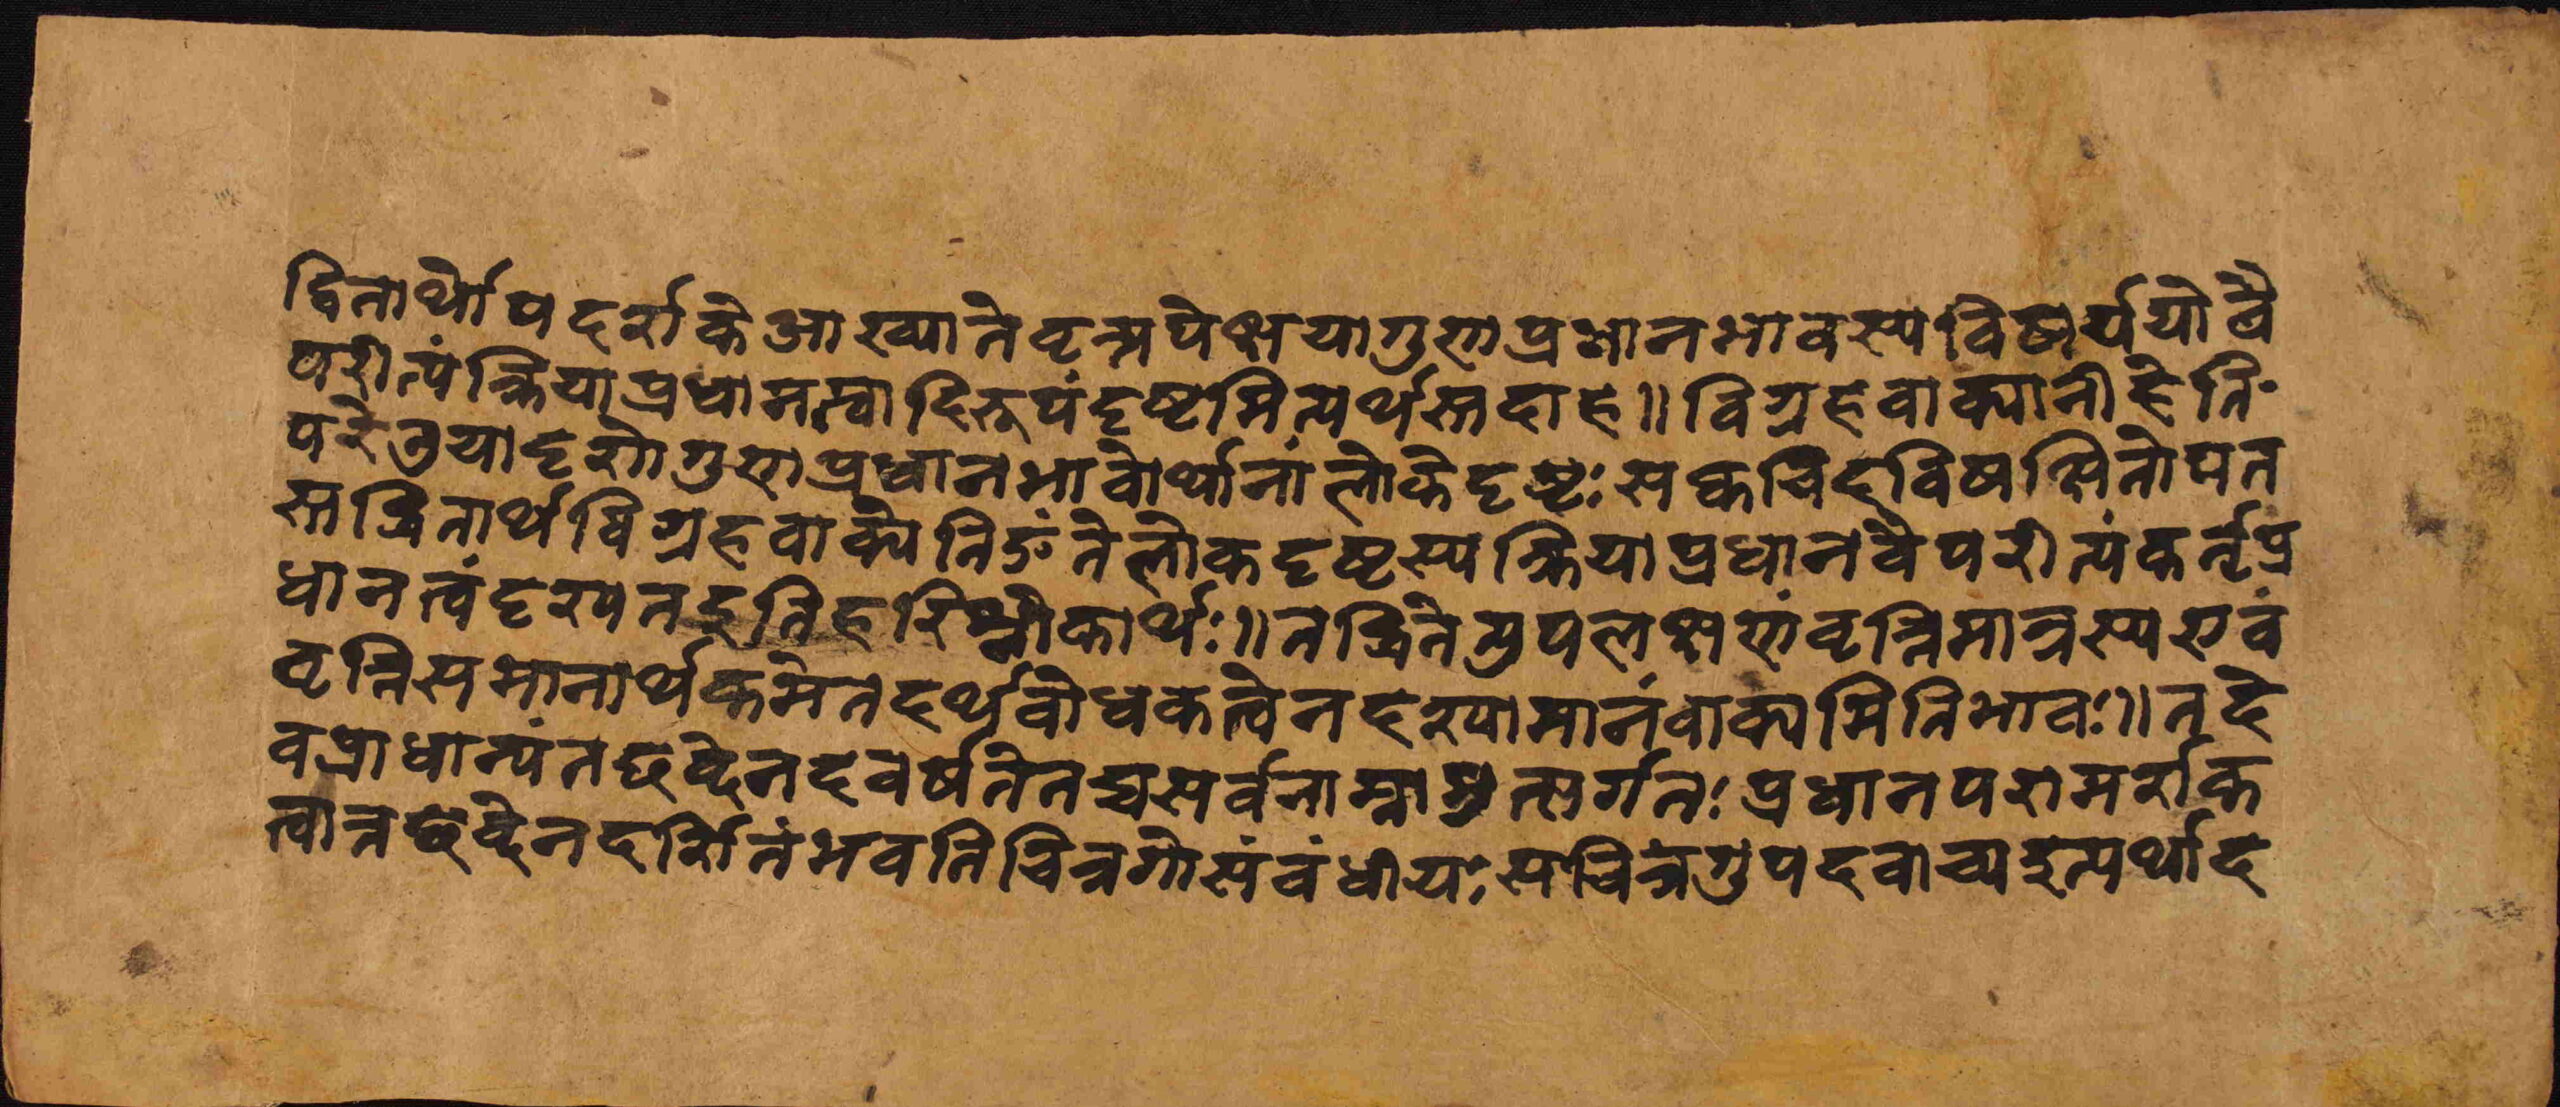 द्धितार्थोपदर्शकेआख्यातेवृत्त्यपेक्षयागुणप्रधानभावस्यविपर्ययोवै
परीत्यंक्रियाप्रधानत्वादिरूपंदृष्टमित्यर्थस्तदाह॥विग्रहवाक्यानीहेति॰
परेतुयादृशोगुणप्रधानभावोर्थानांलोकेदृष्टःसक्वचिदविवक्षितोयत
स्तद्धितार्थविग्रहवाक्येतिङंतेलोकदृष्टस्यक्रियाप्रधानवैपरीत्यंकर्तृप्र
धानत्वंदृश्यतइतिहरिश्लोकार्थः॥तद्धितेत्युपलक्षणंवृत्तिमात्रस्यएवं
वृत्तिसमानार्थकमेतदर्थबोधकत्वेनदृश्यामानंवाक्यमितिभावः॥तदे
वप्राधान्यंतछब्देनदवर्षतेतच्चसर्वनाम्नामुत्सर्गतःप्रधानपरामर्शक
त्वात्तछब्देनदर्शितंभवतिचित्रगोसंबंधीयःसचित्रगुपदवाच्यइत्यर्थाद